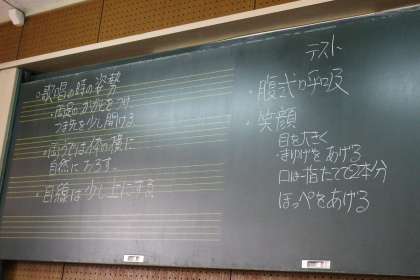 ○歌唱の時の姿勢
・両足のかかとをつけ
つま先を少し開ける
・両うでは体の横に
自然におろす。
・目線は少し上にする
テスト
・腹式呼吸
・笑顔
目を大きく
まゆげをあげる
口は指たてで2本分
ほっぺをあげる